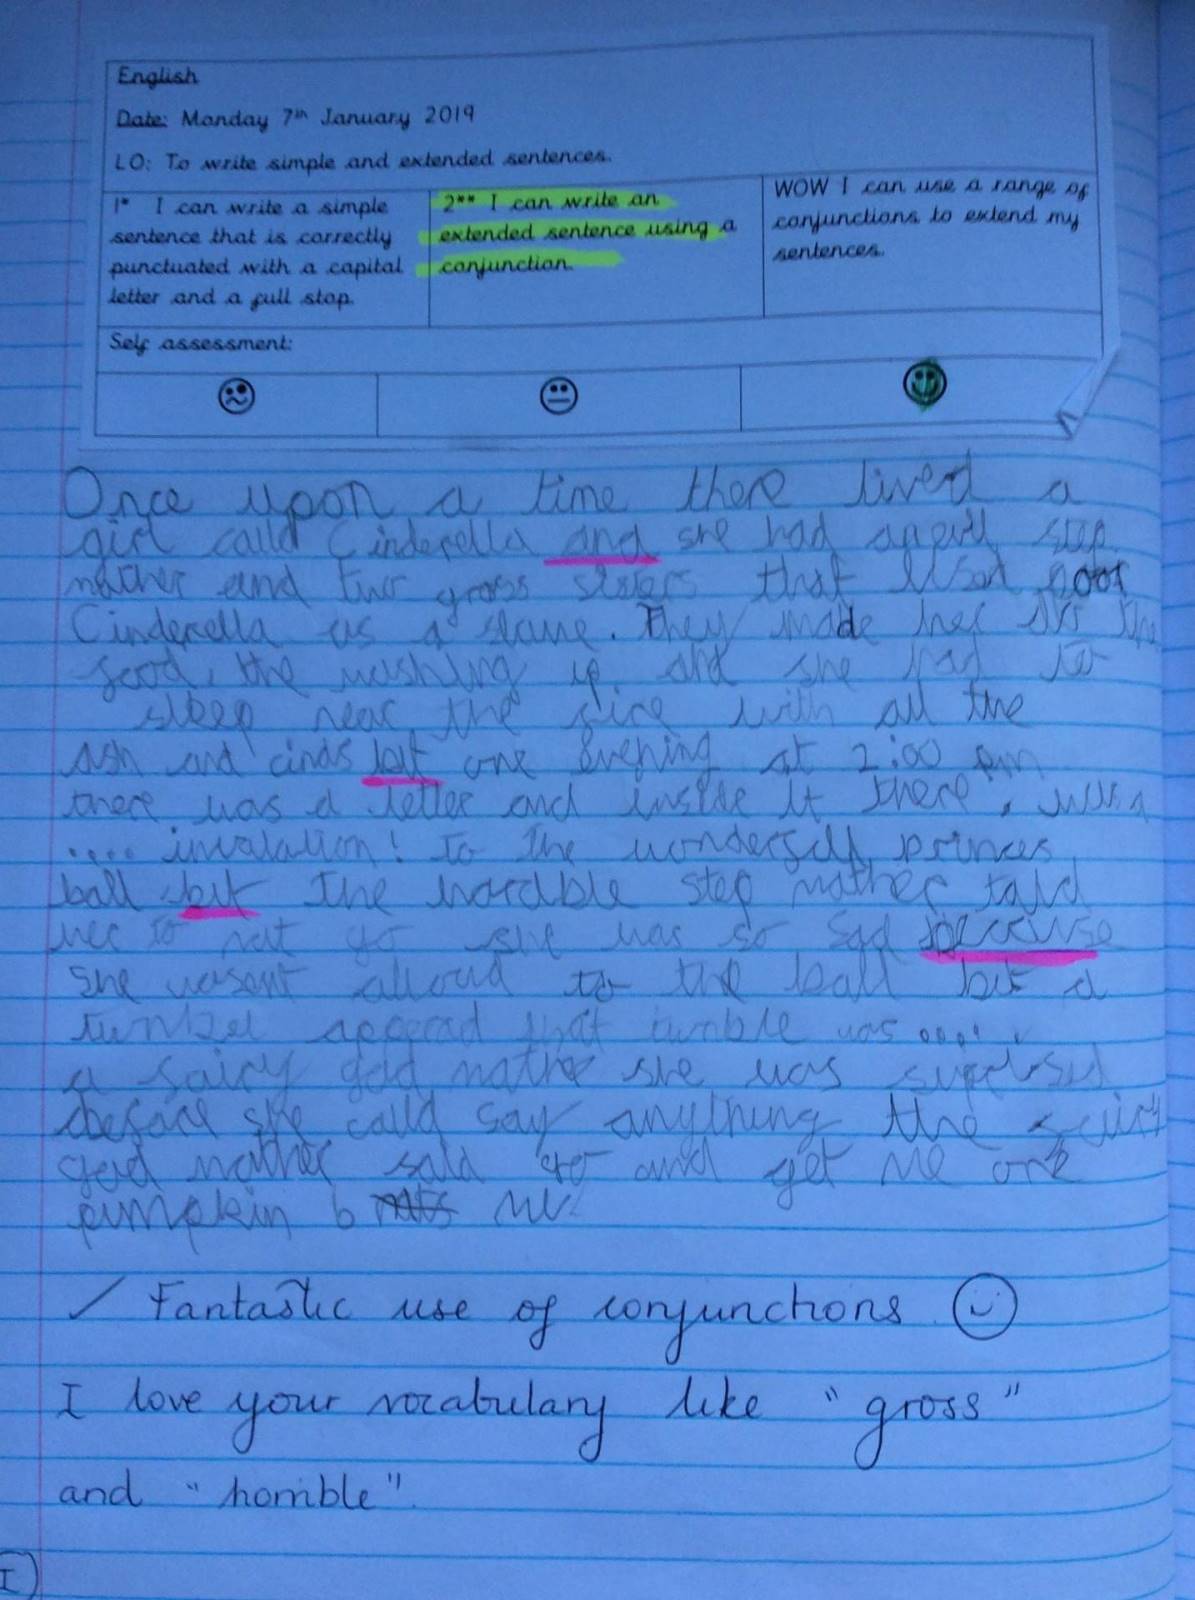 English
Date: Monday 7th January 2019
LO: To write simple and extended sentences.
1* I can write a simple
sentence that is correctly
punctuated with a capital
letter and a full stop.
2** I can write an
extended sentence using a
conjunction.
WOW I can use a range of
conjunctions to extend my
sentences.
Self assessment:
Once upon a time there lived a
girl calld Cinderella and she had step
mather and two gross that poor
Cinderella as a slave. They made her the
food, the washing up and she had to
sleep near the fire with all the
ash and cinds but one evening at 2:00 pm
there was a letter and inside it there was a
.... invatation! to the princes
ball but the horrible step mather told
her to not go she was so sad because
she wasent alloud to the ball but a
that was ....
a fairy god mather she was
before she calld say anything the
god mather said go and get me one
pumpkin
✓ Fantastic use of conjunctions
I love your vocabulary like "gross"
and "horrible".